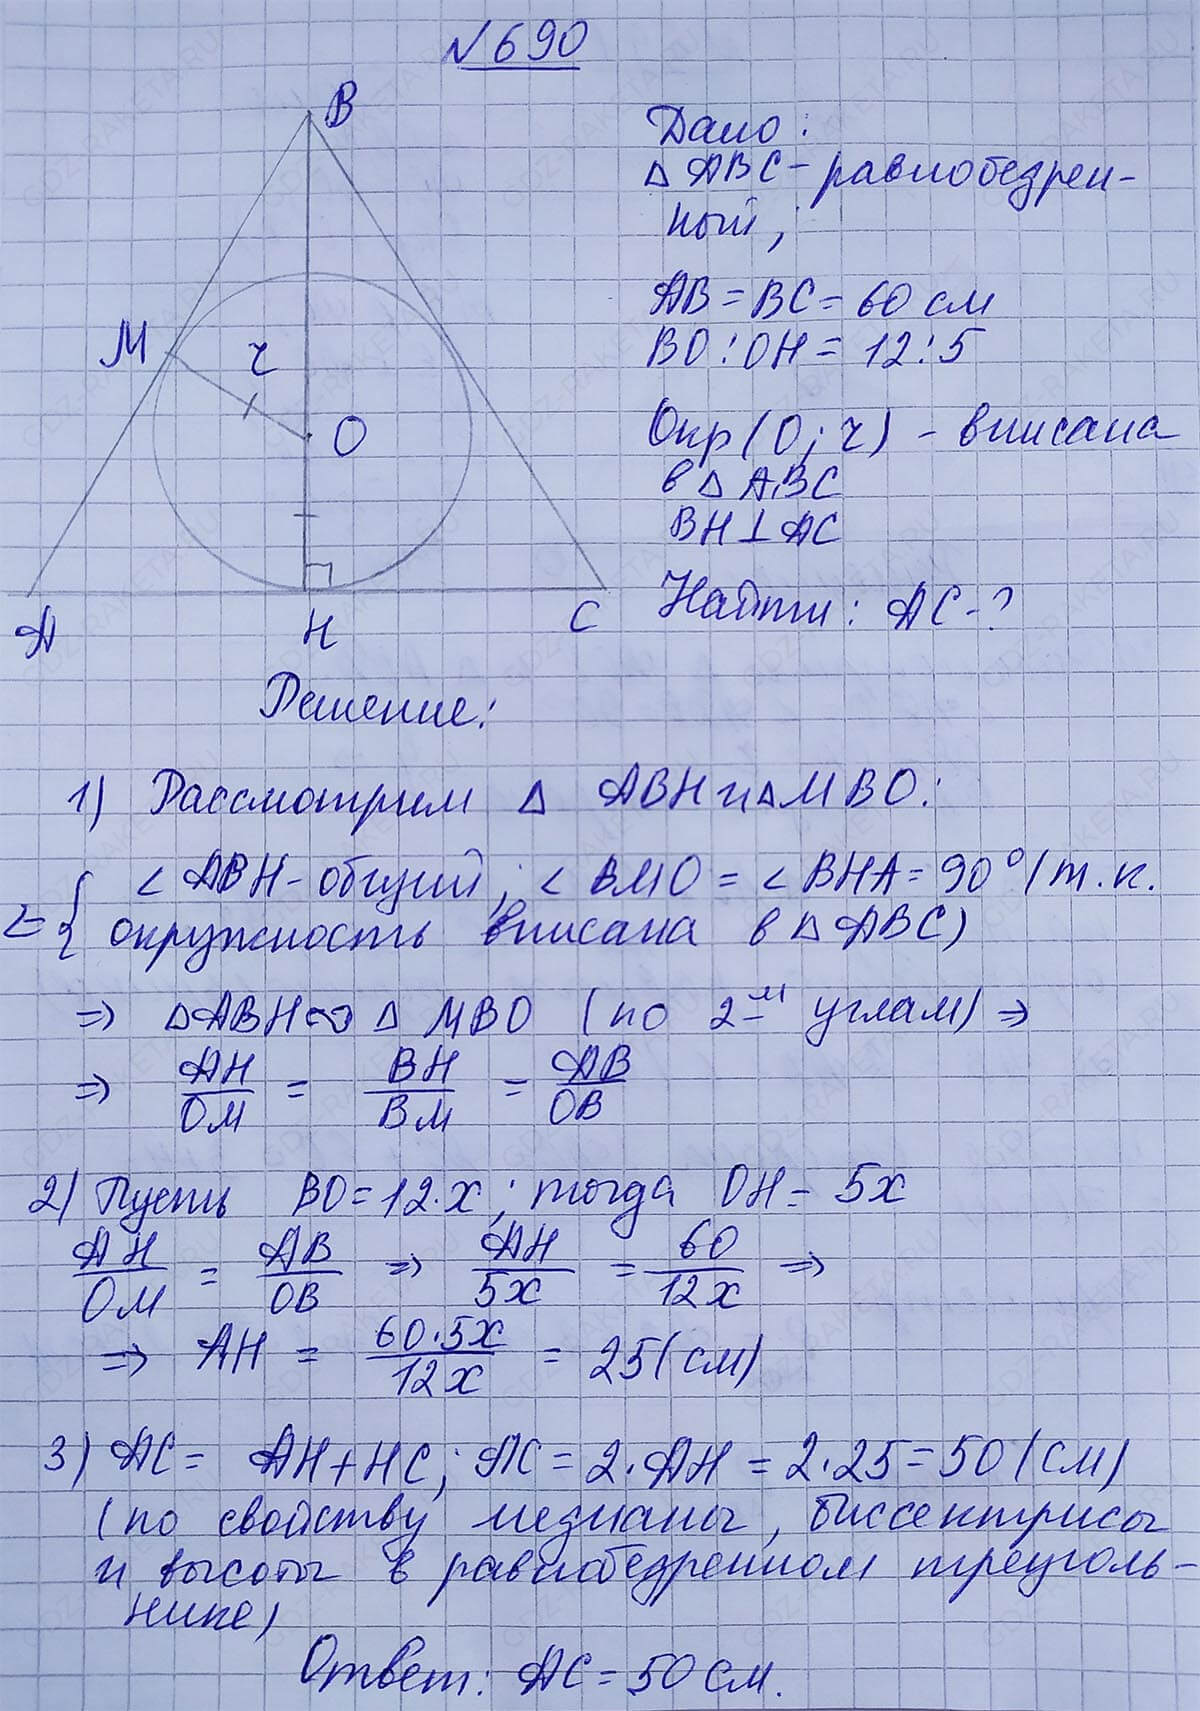 №690
B
M
r
O
A
H
C
Дано:
△ ABC - равнобедрен-
ный;
AB = BC = 60 см
BO : OH = 12 : 5
Окр (O; r) - вписана
в △ ABC
BH ⊥ AC
Найти: AC - ?
Решение:
1) Рассмотрим △ ABH и △ MBO:
{ ∠ ABH - общий; ∠ BMO = ∠ BHA = 90° (т.к.
окружность вписана в △ ABC)
=> △ ABH ∾ △ MBO (по 2-м углам) =>
=> AH/OM = BH/BM = AB/OB
2) Пусть BO = 12·x; тогда OH = 5x
AH/OM = AB/OB => AH/5x = 60/12x =>
=> AH = 60·5x/12x = 25 (см)
3) AC = AH + HC; AC = 2·AH = 2·25 = 50 (см)
(по свойству медианы, биссектрисы
и высоты в равнобедренном треуголь-
нике)
Ответ: AC = 50 см.